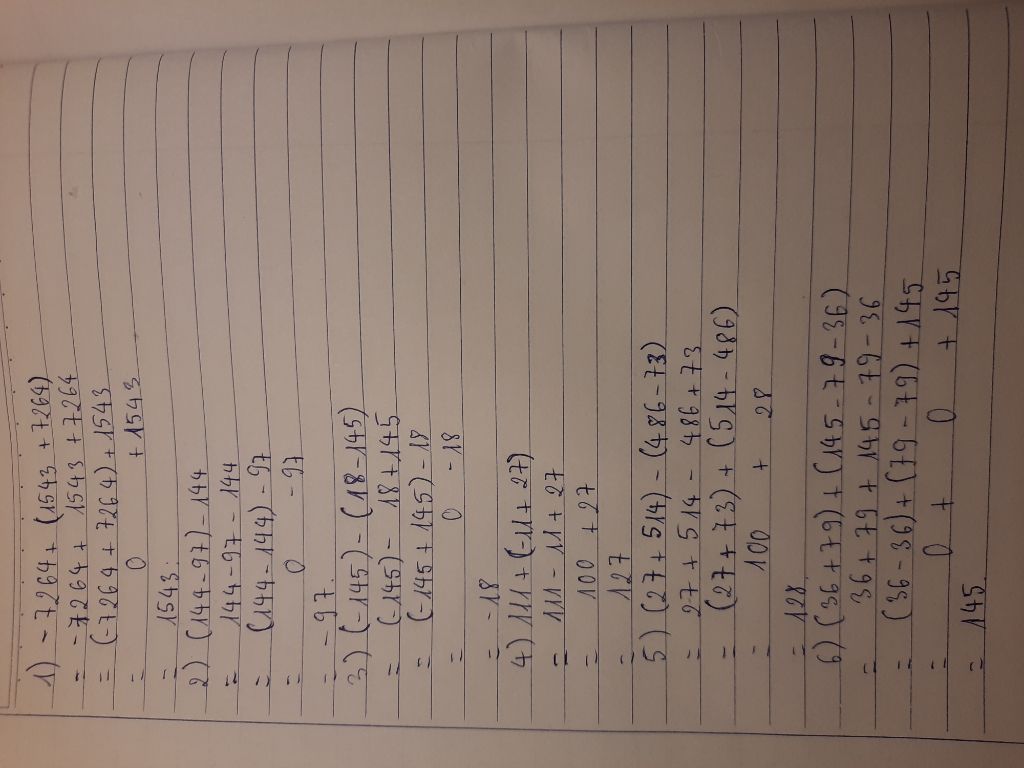 1) -7264 + (1543 + 7264)
= -7264 + 1543 + 7264
= (-7264 + 7264) + 1543
= 0 + 1543
= 1543.
2) (144-97) - 144
= 144 - 97 - 144
= (144 - 144) - 97
= 0 - 97
= -97.
3) (-145) - (18 - 145)
= (-145) - 18 + 145
= (-145 + 145) - 18
= 0 - 18
= -18
4) 111 + (-11 + 27)
= 111 - 11 + 27
= 100 + 27
= 127
5) (27 + 514) - (486 - 73)
= 27 + 514 - 486 + 73
= (27 + 73) + (514 - 486)
= 100 + 28
= 128.
6) (36 + 79) + (145 - 79 - 36)
= 36 + 79 + 145 - 79 - 36
= (36 - 36) + (79 - 79) + 145
= 0 + 0 + 145
= 145.